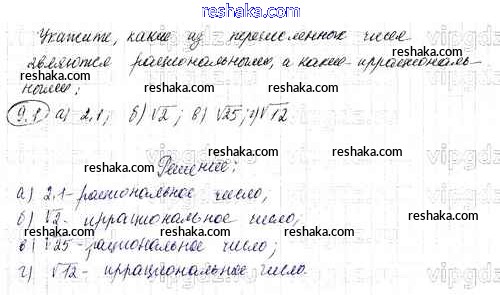 reshaka.com
Укажите, какие из перечисленных чисел
являются рациональными, а какие иррациональ-
ными:
reshaka.com reshaka.com
9.1 а) 2,1; б) √2; в) √25; г) √12
reshaka.com reshaka.com
Решение:
reshaka.com
а) 2,1 - рациональное число;
reshaka.com
б) √2 - иррациональное число;
reshaka.com
в) √25 - рациональное число;
г) √12 - иррациональное число.
reshaka.com reshaka.com